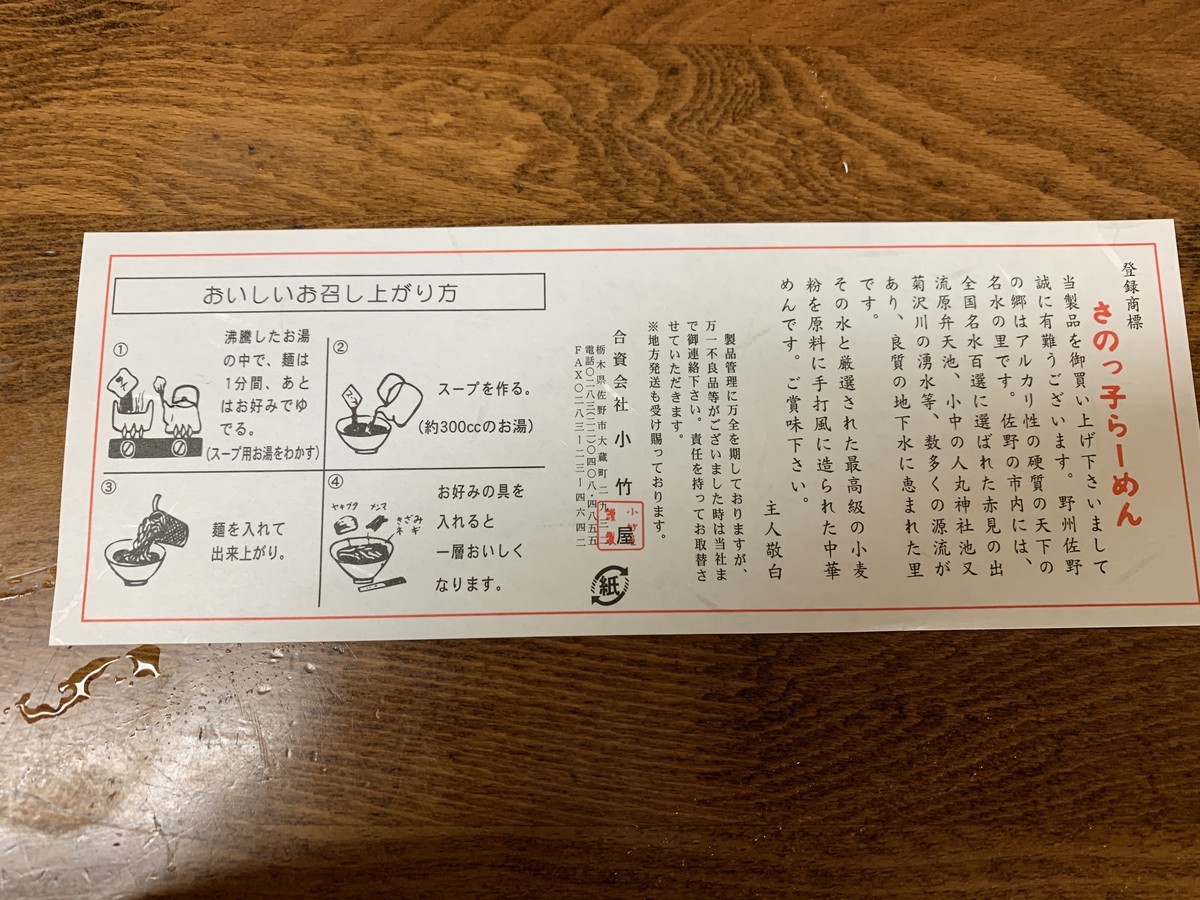 登録商標
さのっ子らーめん
当製品を御買い上げ下さいまして
誠に有難うございます。野州佐野
の郷はアルカリ性の硬質の天下の
名水の里です。佐野の市内には、
全国名水百選に選ばれた赤見の出
流原弁天池、小中の人丸神社池又
菊沢川の湧水等、数多くの源流が
あり、良質の地下水に恵まれた里
です。
その水と厳選された最高級の小麦
粉を原料に手打風に造られた中華
めんです。ご賞味下さい。
主人敬白
製品管理に万全を期しておりますが、
万一不良品等がございました時は当社ま
で御連絡下さい。責任を持ってお取替さ
せていただきます。
※地方発送も受け賜っております。
合資会社 小竹屋
栃木県佐野市大蔵町二九三一
電話〇二八三(二二)〇四〇八・四八五五
FAX〇二八三―二三―四六四二
紙
おいしいお召し上がり方
①
沸騰したお湯
の中で、麺は
1分間、あと
はお好みでゆ
でる。
(スープ用お湯をわかす)
②
スープを作る。
(約300ccのお湯)
③
麺を入れて
出来上がり。
④
ヤキブタ
メンマ
きざみ
ネギ
お好みの具を
入れると
一層おいしく
なります。